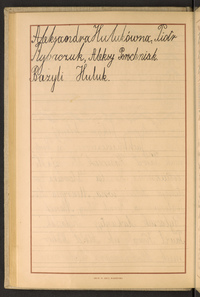 Aleksandra Hulukówna, Piotr
Rybrczuk, Aleksy Penchniak
Bazyli Huluk.